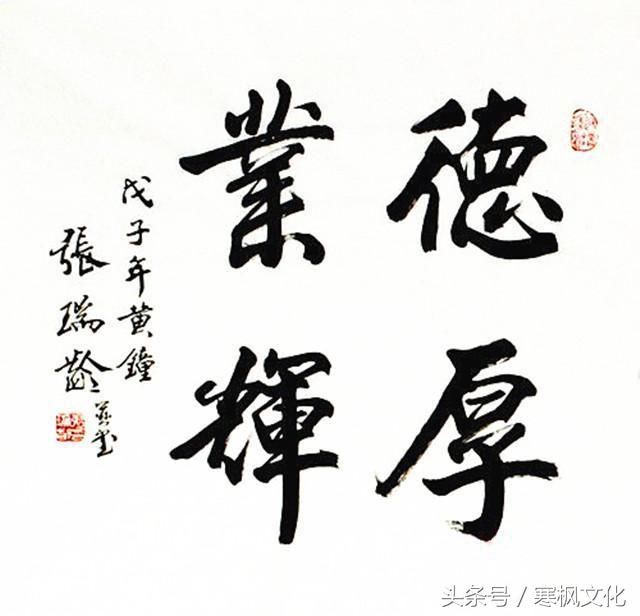 德厚
業輝
戊子年黄鐘
張瑞齡
头条号 / 寒枫文化